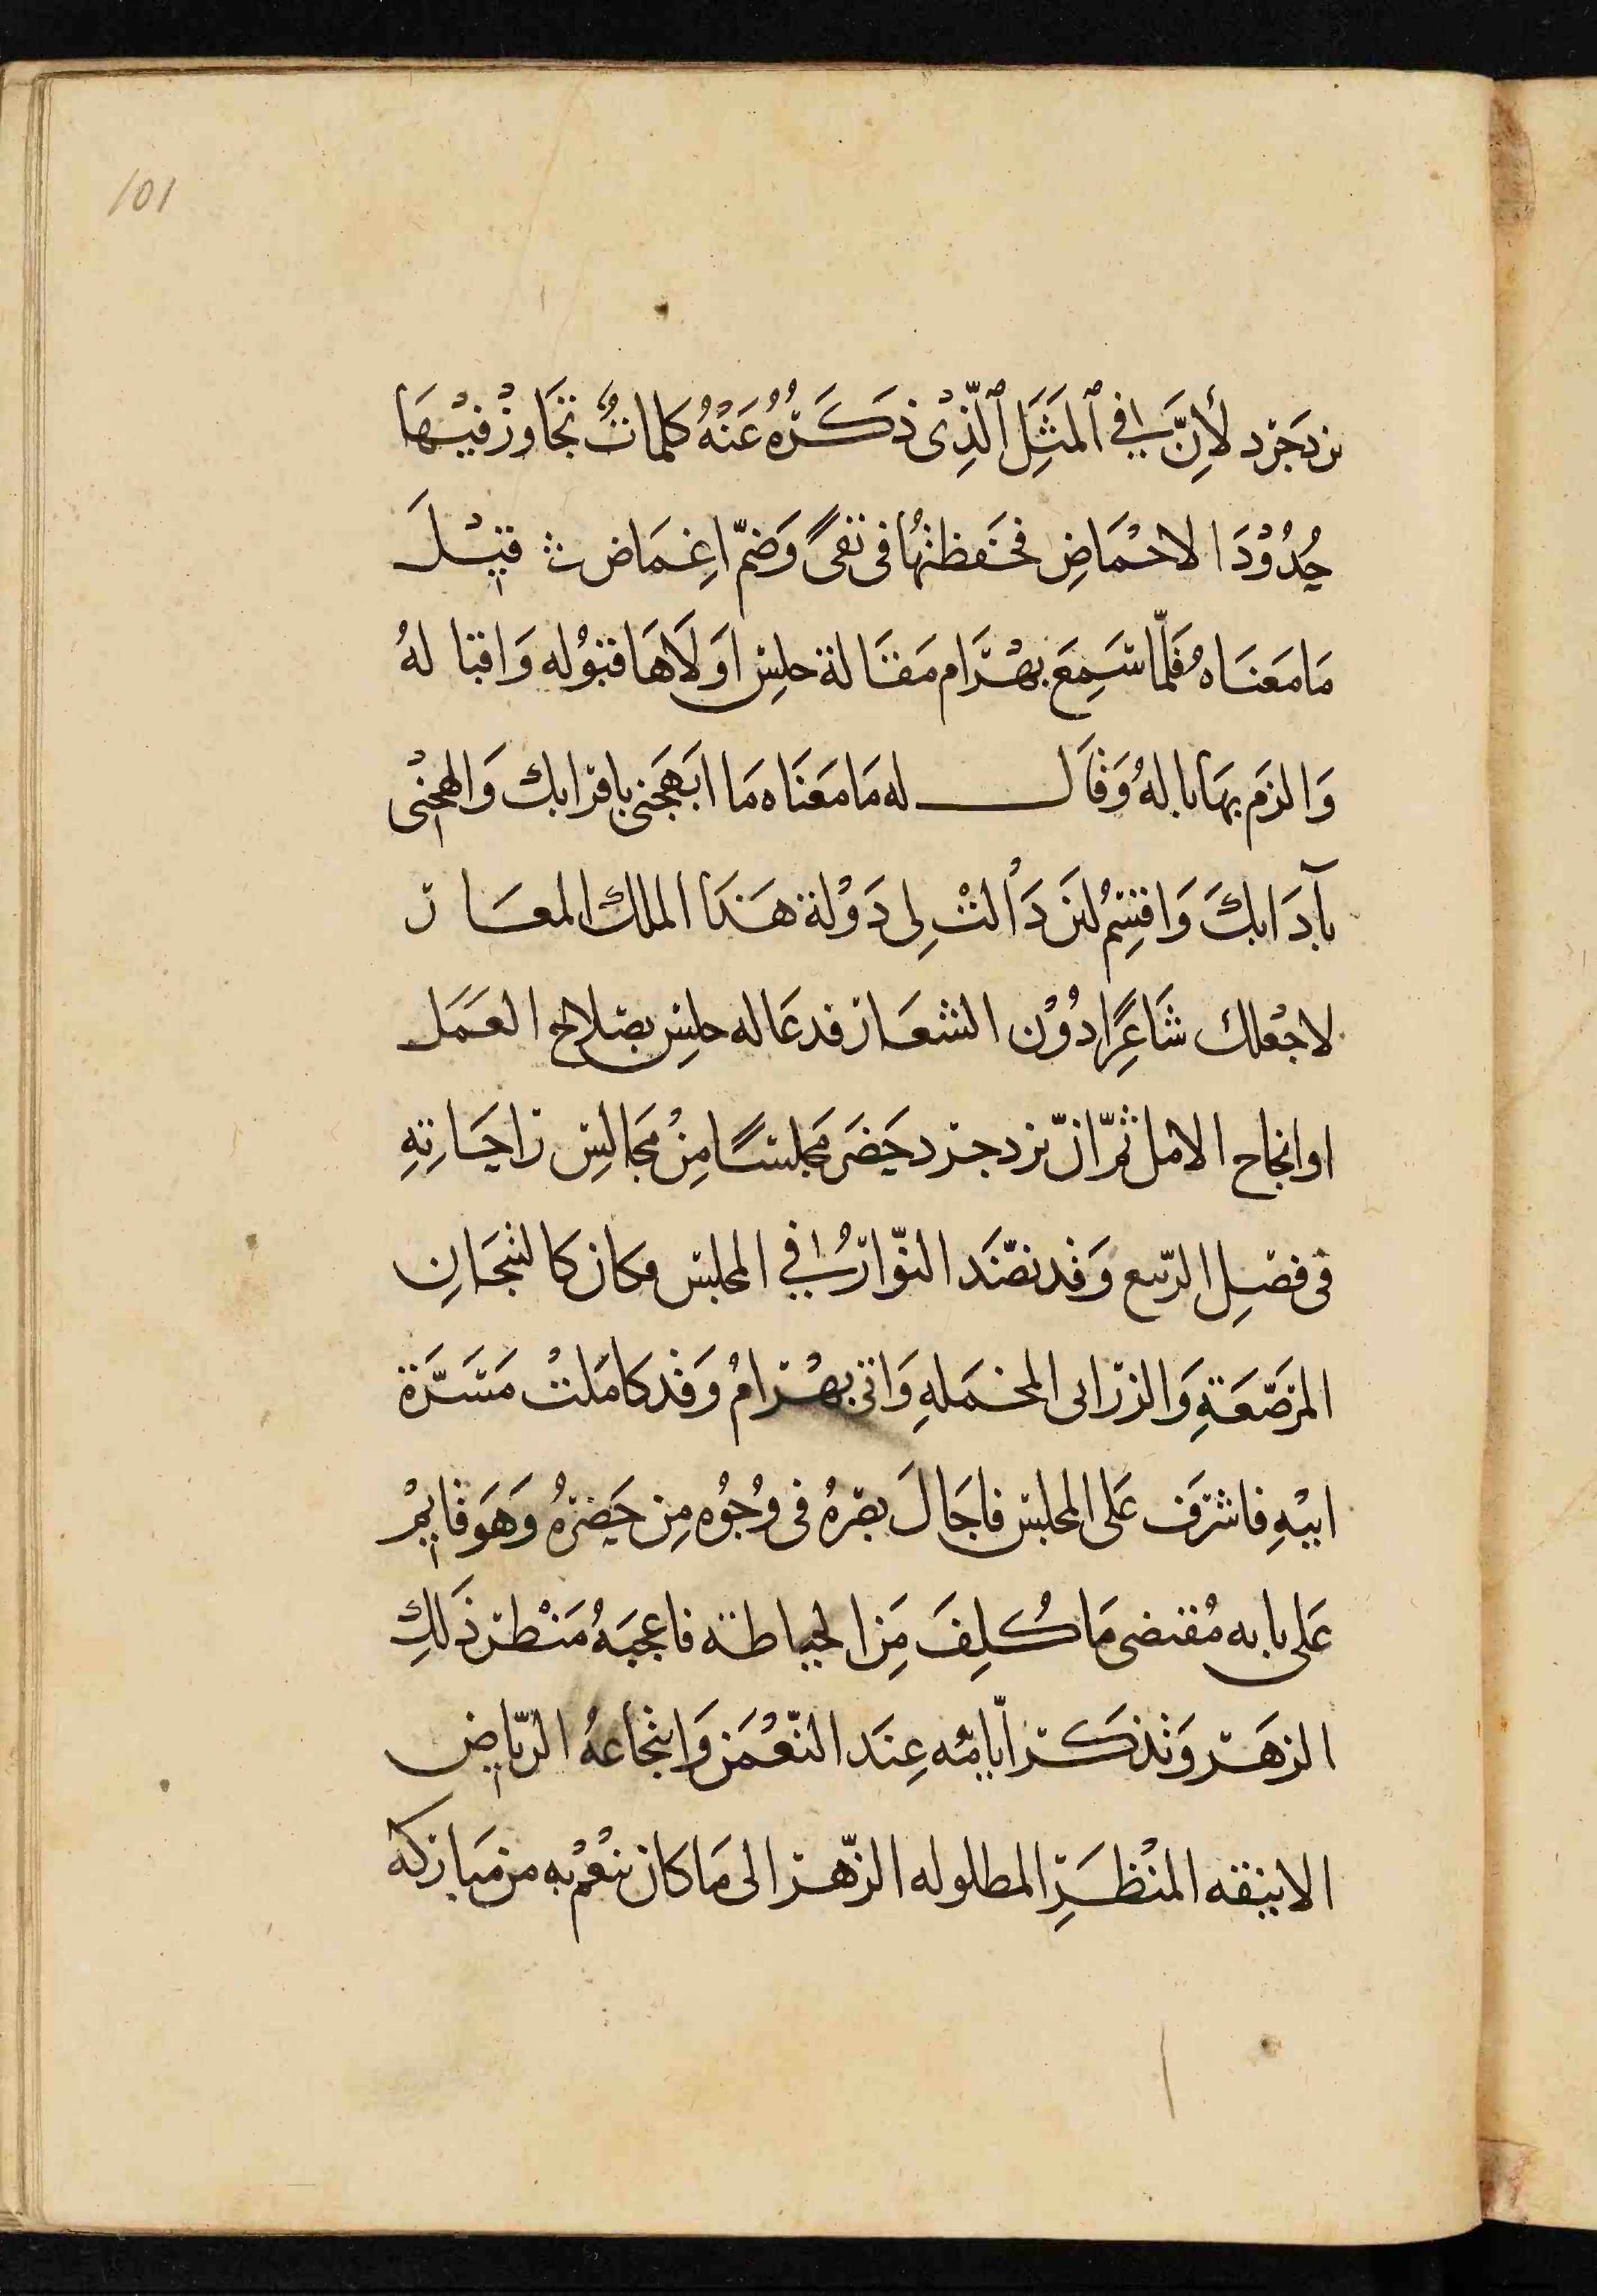 101
يزدجرد لأنّ في ٱلمَثِل ٱلّذِى ذكَرتُهُ عَنْهُ كلماتٌ تجَاوزْ فيْهَا
حُدُوْدَ الاحْمَاضِ فحَفظتهُا فى نفىً وَضمّ اغِمَاض ث قيْلَ
مَا مَعنَاهُ فَلمّا سَمِعَ بهْرَام مَقَالة حلِس اوَلَاهَا قبوُله وَاقباله
وَالزَم بهَا باله وَقالَ له مَا مَعنَاه مَا ابَهجَنى باقرابك وَالهجنْى
بآدَابكَ وَاقسِمُ لئن دَالتْ لى دَوْلة هَذا الملك المعَار
لاجْعلك شَاعِرًا دُوْن الشعَار فدعَا له حلِس بصَلاح العَمَل
اوانجاح الامل ثمّ انّ يزدجرد حَضَر مَجلسًا مِنْ مجَالِس رَاحَاتِهِ
فى فصِل الرّبيع وَقد نضّدَ النوّارُ في المجلس مكان كالشجَانِ
المرَصّعَةِ وَالزرَابى المخمَلهِ وَاتى بهْرامُ وَقد كامَلتْ مَسَرَّة
ابيْهِ فاشرَف عَلى المجلس فاجَالَ بصَرهُ فى وُجُوْه مِن حَضرَهُ وَهَو قايمْ
عَلى بابه مُقتضى مَا كُلِفَ مِن الحياطة فاعجبَهُ مَنْظر ذلكِ
الزهَر وَتذكّر أيّامُه عِنَد النّعْمَن وَانتجاعهُ الرّياض
الانيقه المنْظَرِ المطلوله الزّهر الى مَا كان ينعْم به من مَباركه